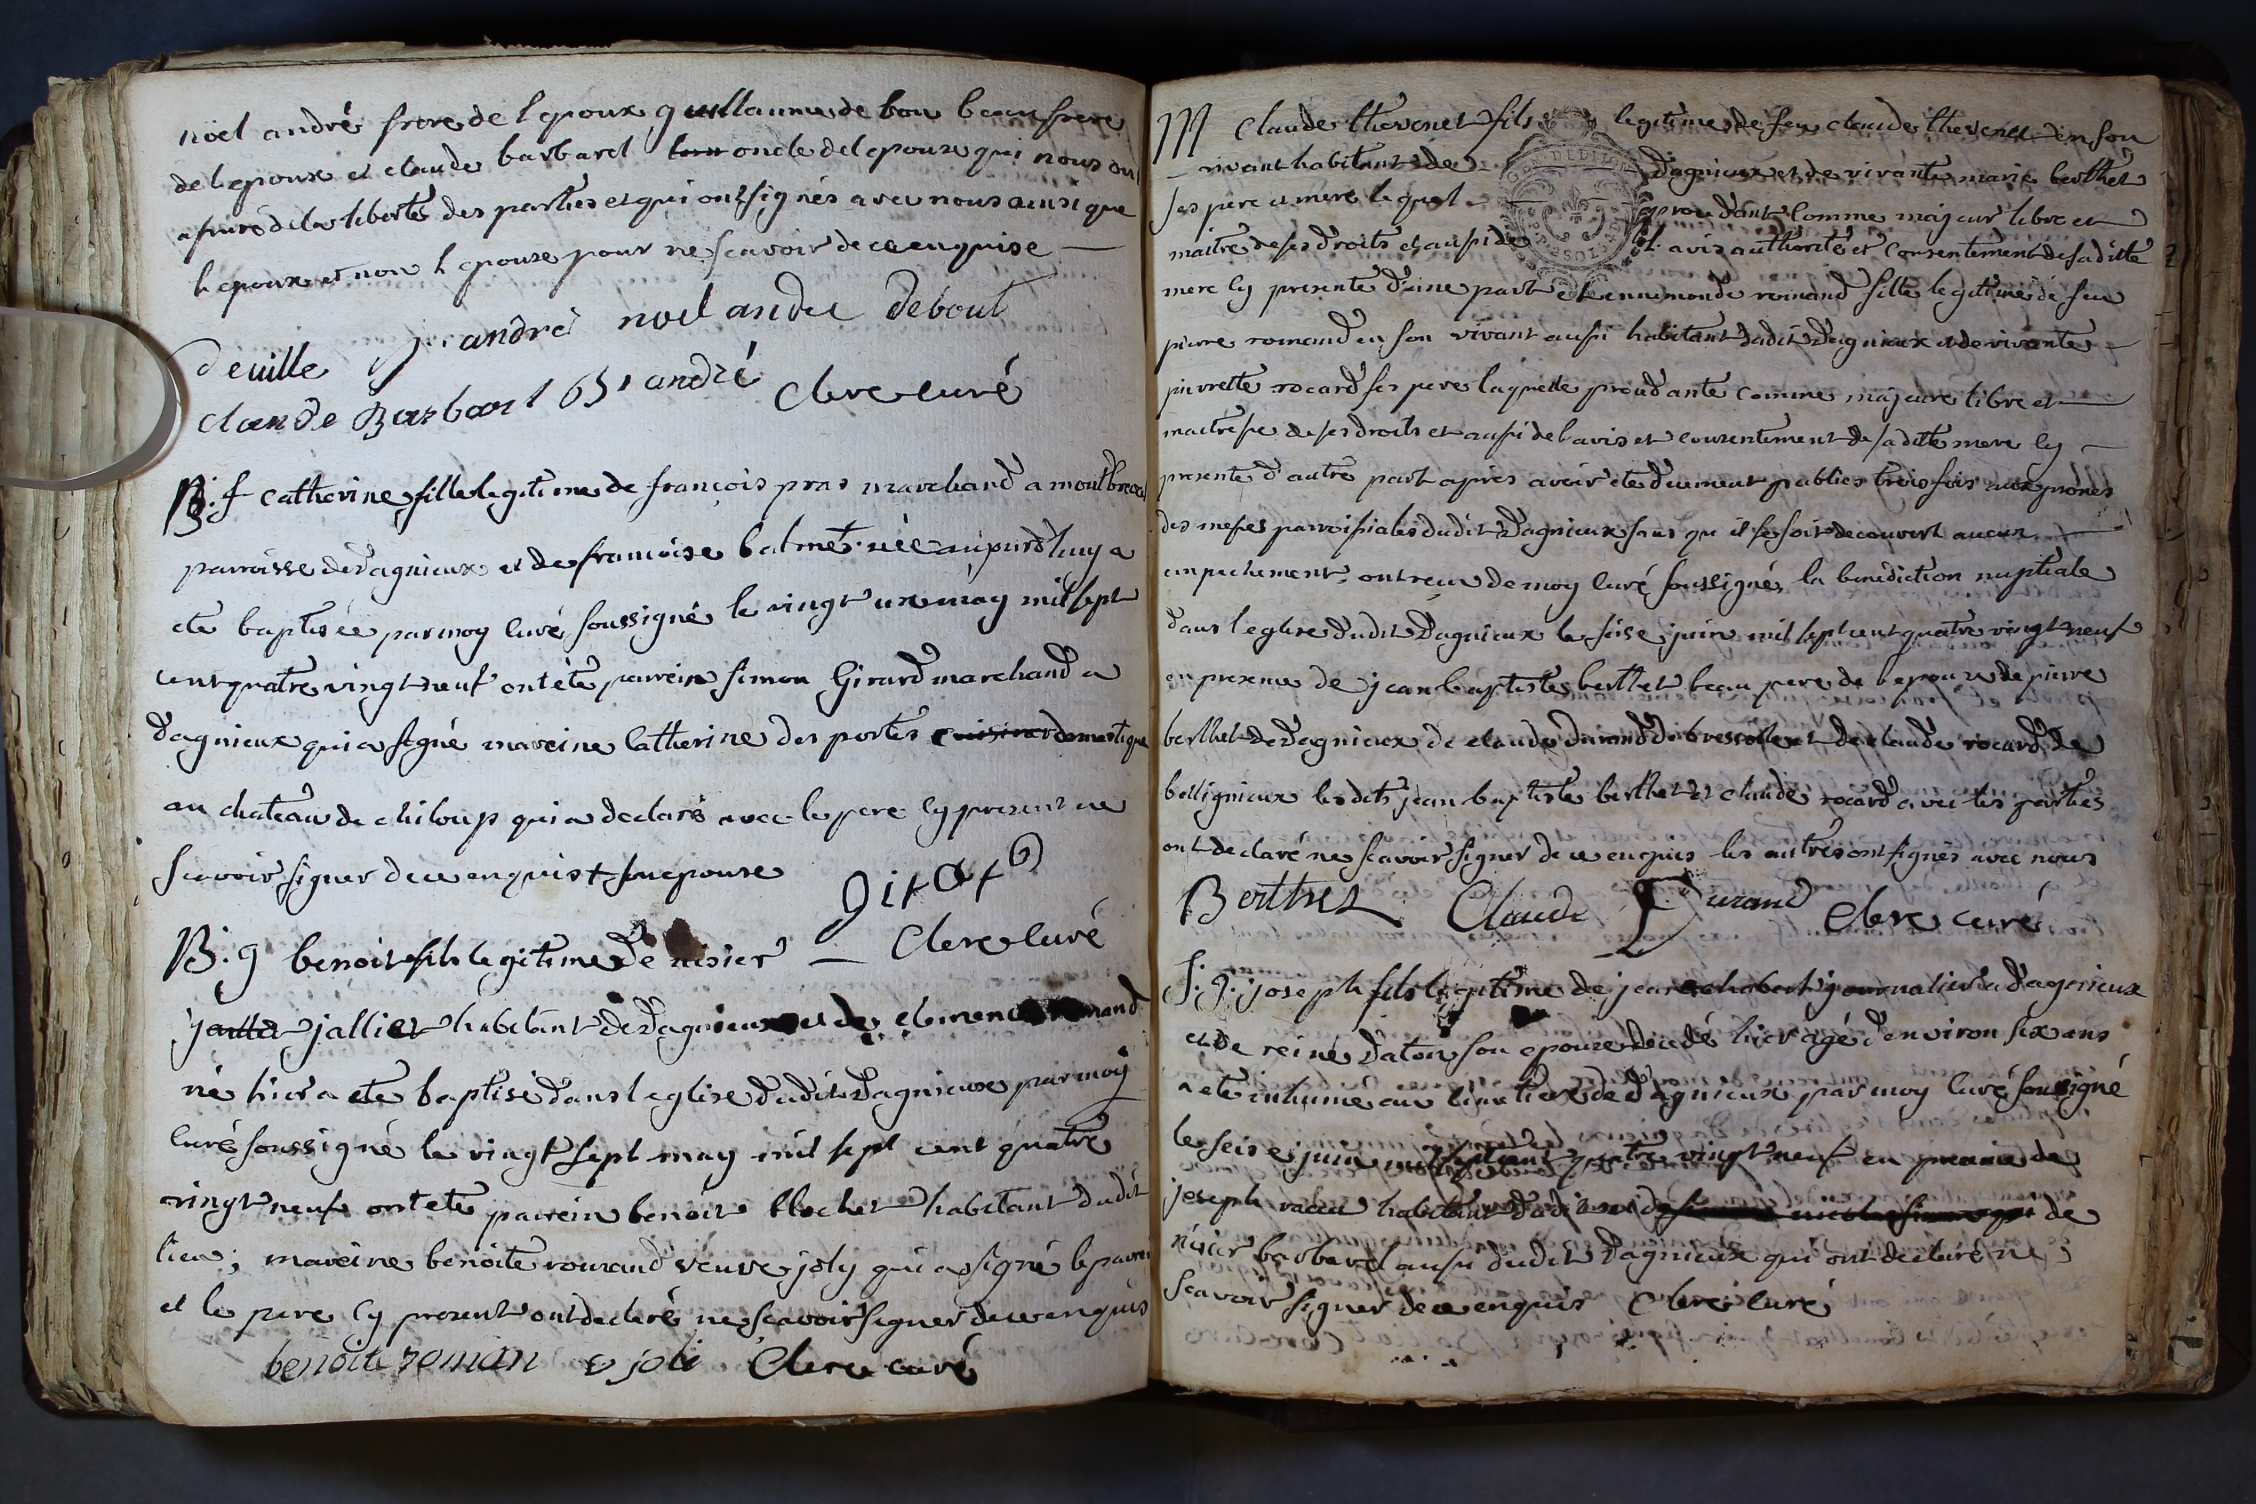 noel andré frere de lepoux guillaume de bou beau frere
de lepoux et claude barbarel oncle de lepoux qui nous ont
assuré de la liberté des parties et qui ont signés avec nous ainsi que
lepoux et non lepouse pour ne scavoir de ce enquise
deuille andré noel andre debout
claude Barbarel andré Clerc curé
B: f catherine fille legitime de francois pras marchand a montbreval
parroisse de dagnieux et de francoise balmet née aujourdhuy a
eté baptisée par moy curé soussigné le vingt un may mil sept
cent quatre vingt neuf ont été parrein simon Girard marchand a
dagnieux qui a signé mareine Catherine des portes cuisiner domestique
au chateau de chiloup qui a declaré avec le pere cy present ne
scavoir signer de ce enquis + son epouse
girard
Clerc curé
B: g benoit fils legitime de nisier
jallier jallier habitant de dagnieux et de clemence romand
né hier a eté baptisé dans leglise dudit dagnieux par moy
curé soussigné le vingt sept may mil sept cent quatre
vingt neuf ont eté parrein benoit blochet habitant dudit
lieu; mareine benoite romand veuve joly qui a signé le parrein
et le pere cy present ont declaré ne scavoir signer de ce enquis
benoite roman v joli Clerc curé
M Claude thevenet fils legitime de feu claude thevenet en son
vivant habitant de dagnieux et de vivante marie berthet
ses pere et mere lequel procedant comme majeur libre et
maitre de ses droits et aussi de l'avis authorité et consentement de sa ditte
mere cy presente d'une part et ennemonde romand fille legitime de feu
pierre romand en son vivant aussi habitant dudit dagnieux et de vivante
pierrette rocard ses pere laquelle procedante comme majeure libre et
maitresse de ses droits et aussi de lavis et consentement de sa ditte mere cy
presente d'autre part apres avoir eté duement publiés trois fois aux prônes
des messes parroissiales dudit dagnieux sans qu il se soit decouvert aucun
empechement, ont recu de moy curé soussigné la benediction nuptiale
dans leglise dudit dagnieux le seise juin mil sept cent quatre vingt neuf
en presence de jean baptiste berthet beau pere de lepoux de pierre
berthet de dagnieux de claude durand de bressolle et de claude rocard de
belligneux les dits jean baptiste berthet et claude rocard avec les parties
ont declaré ne scavoir signer de ce enquis les autres ont signés avec nous
Berthet Claude Durand Clerc curé
S. g. joseph fils legitime de jean chabert journalier a dagnieux
et de reine daton son epouse decedé hier agé denviron six ans
a eté inhumé au cimetiere de dagnieux par moy curé soussigné
le seise juin mil sept cent quatre vingt neuf en presence de
joseph habitant dudit lieu et de de
nisier barbarel aussi dudit dagnieux qui ont declaré ne
scavoir signer de ce enquis Clerc curé